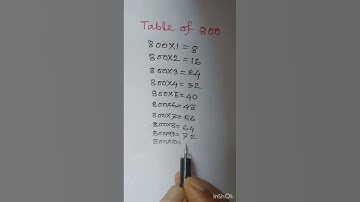 Table of 800
800×1 = 8
800×2 = 16
800×3 = 24
800×4 = 32
800×5 = 40
800×6 = 48
800×7 = 56
800×8 = 64
800×9 = 72
800×10 =
InShOt